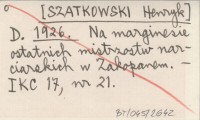 [SZATKOWSKI Henryk]
D. 1926. Na marginesie
ostatnich mistrzostw nar-
ciarskich w Zakopanem. –
IKC 17, nr 21.
BT/045/2642